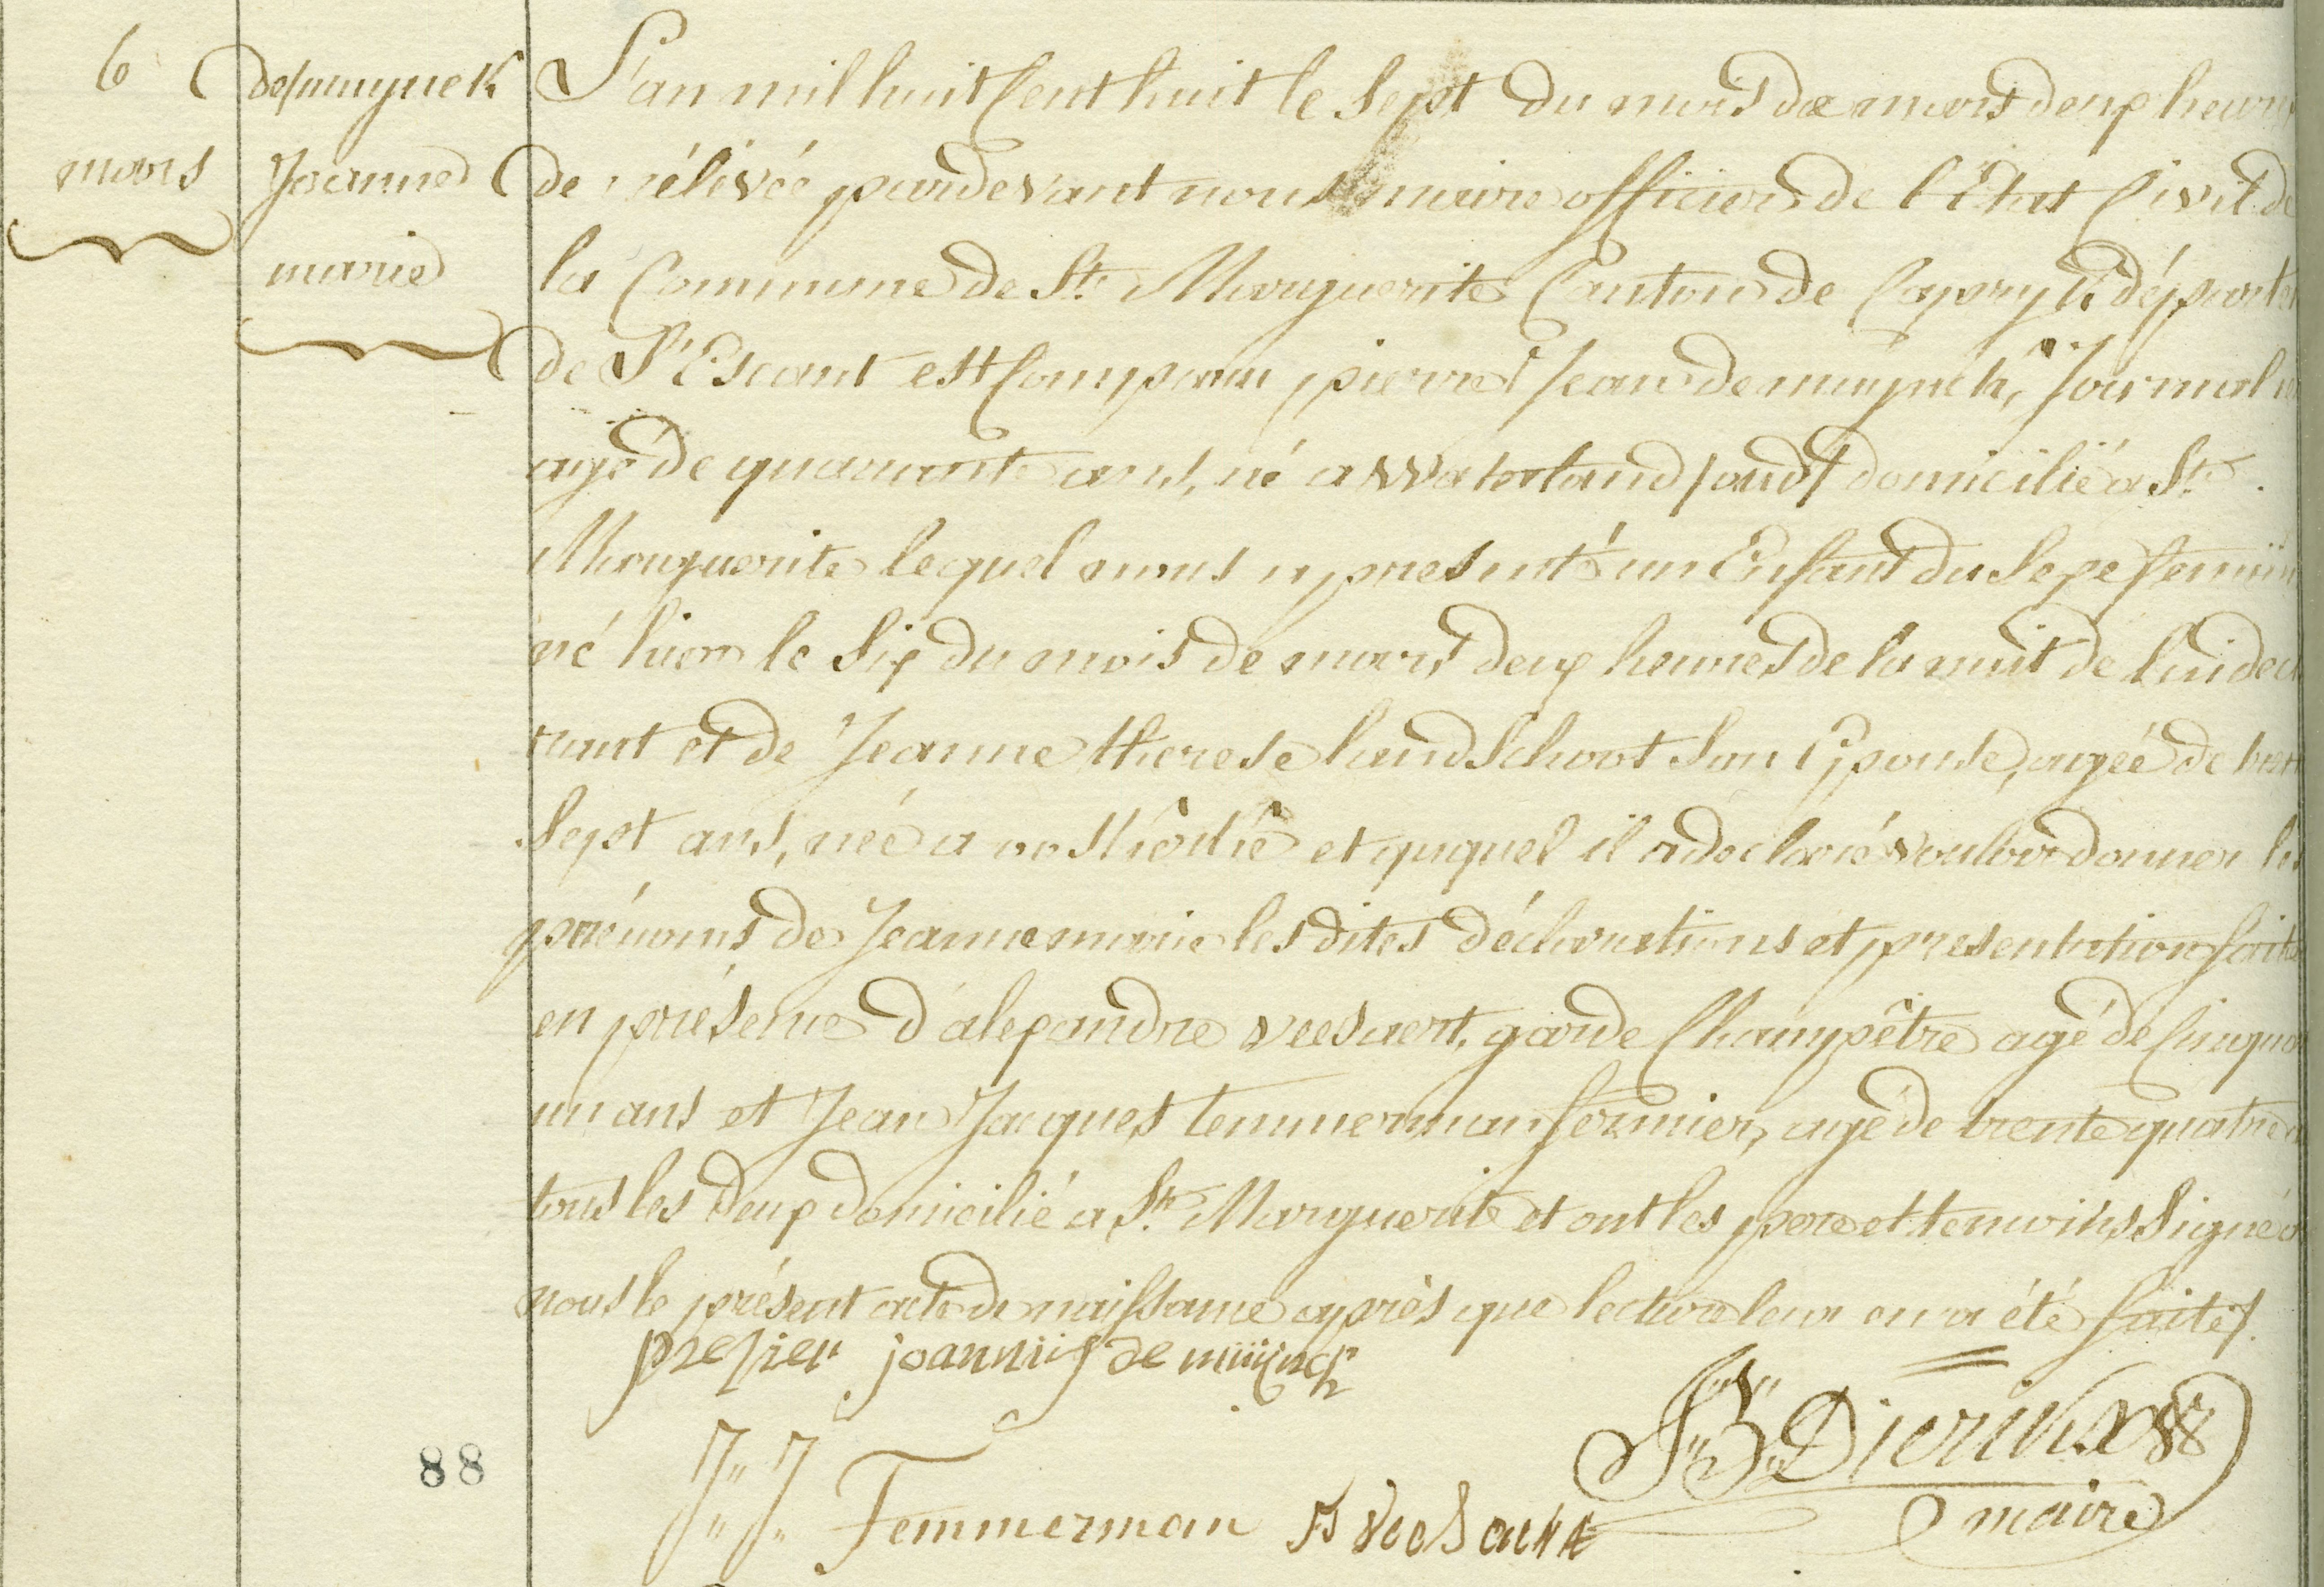 6
mars
demuynck
Jeanne
marie
L'an mil huit Cent huit le Sept du mois de mars deux heures
de rélivée pardevant nous maire officier de l'Etat Civil de
la Commune de Ste Marguerite Canton de Capryk départe
de L'Escaut est Comparu pierre Jean demuynck, Journal
agé de quarante ans, né a Waterland / oud / domicilié a Ste
Marguerite lequel nous a presenté un Enfant du Sexe feminin
né hier le Six du mois de mars deux heures de la nuit de lui decla
rant et de Jeanne therese handschoot Son Epouse, agée de trente
Sept ans, née a et ququel il a declaré vouloir donner les
prénoms de Jeanne marie les dites déclarations et presentation faites
en présence d'alexandre veesaert, garde Champêtre agé de Cinquan
un ans et Jean Jacques temmerman fermier, agé de trente quatre
tous les deux domicilié a Ste Marguerite et ont les pere et temoins Signé
nous le présent acte de naissance après que lecture leur en a été faite /.
joannis de muijnck
J. B. Dierikx
maire
88
J. J. Temmerman